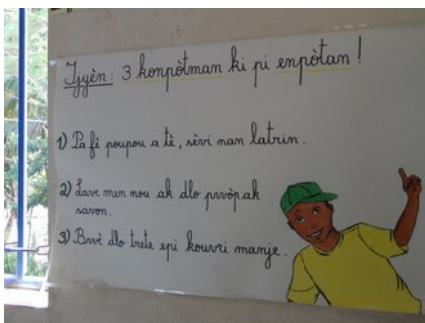 Ijyèn : 3 konpòtman ki pi enpòtan !
1) Pa fè poupou a tè, sèvi nan latrin.
2) Lave men nou ak dlo pwòp ak
savon.
3) Bwè dlo trete epi kouvri manje.